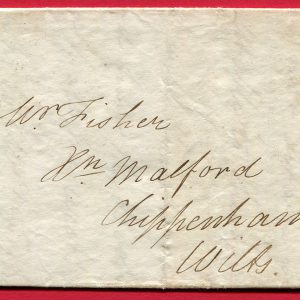 Mr Fisher
Xn Malford
Chippenham
Wilts.